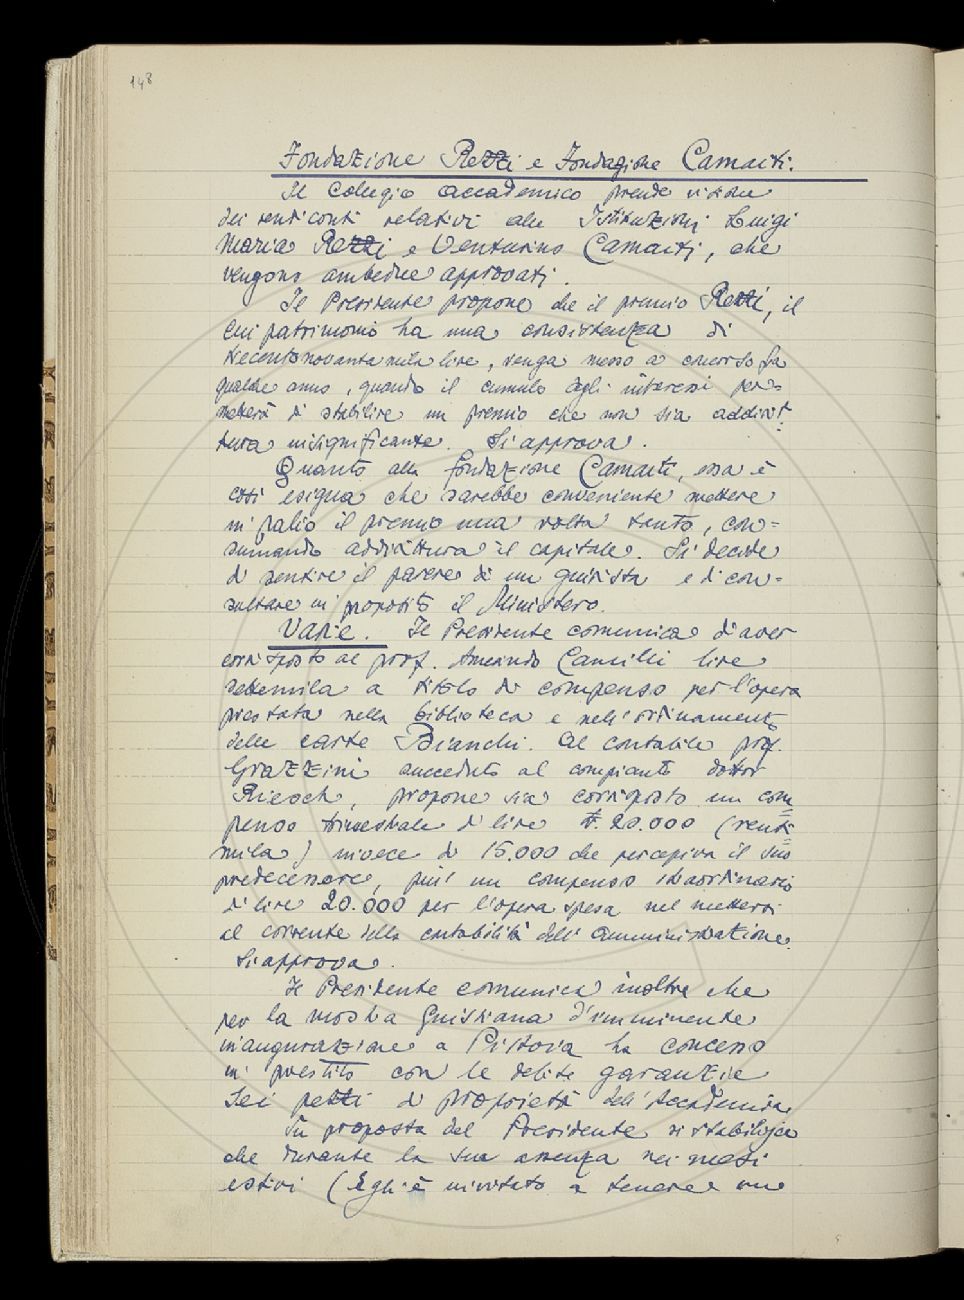 148
Fondazione Rezzi e Fondazione Camaiti.
Il Collegio accademico prende visione
dei rendiconti relativi alle Istituzioni Luigi
Maria Rezzi e Venturino Camaiti, che
vengono ambedue approvati.
Il Presidente propone che il premio Rezzi, il
cui patrimonio ha una consistenza di
trecentonovantamila lire, venga messo a concorso fra
qualche anno, quando il cumulo degli interessi per=
metterà di stabilire un premio che non sia addirit=
tura insignificante. Si approva.
Quanto alla fondazione Camaiti, essa è
così esigua che sarebbe conveniente mettere
in palio il premio una volta tanto, con=
sumando addirittura il capitale. Si decide
di sentire il parere di un giurista e di con=
sultare in proposito il Ministero.
Varie. Il Presidente comunica di aver
corrisposto al prof. Amerindo Camilli lire
settemila a titolo di compenso per l'opera
prestata nella biblioteca e nell'ordinamento
delle carte Bianchi. Al contabile prof.
Grazzini succeduto al compianto dottor
Rieoch, propone sia corrisposto un com=
penso trimestrale di lire 20.000 (venti=
mila) invece di 15.000 che percepiva il suo
predecessore, più un compenso straordinario
di lire 20.000 per l'opera spesa nel mettersi
al corrente della contabilità dell'amministrazione.
Si approva.
Il Presidente comunica inoltre che
per la mostra Giustiana d'imminente
inaugurazione a Pistoia ha concesso
in prestito con le debite garanzie
sei pezzi di proprietà dell'Accademia.
Su proposta del Presidente si stabilisce
che durante la sua assenza nei mesi
estivi (Egli è invitato a tenere un